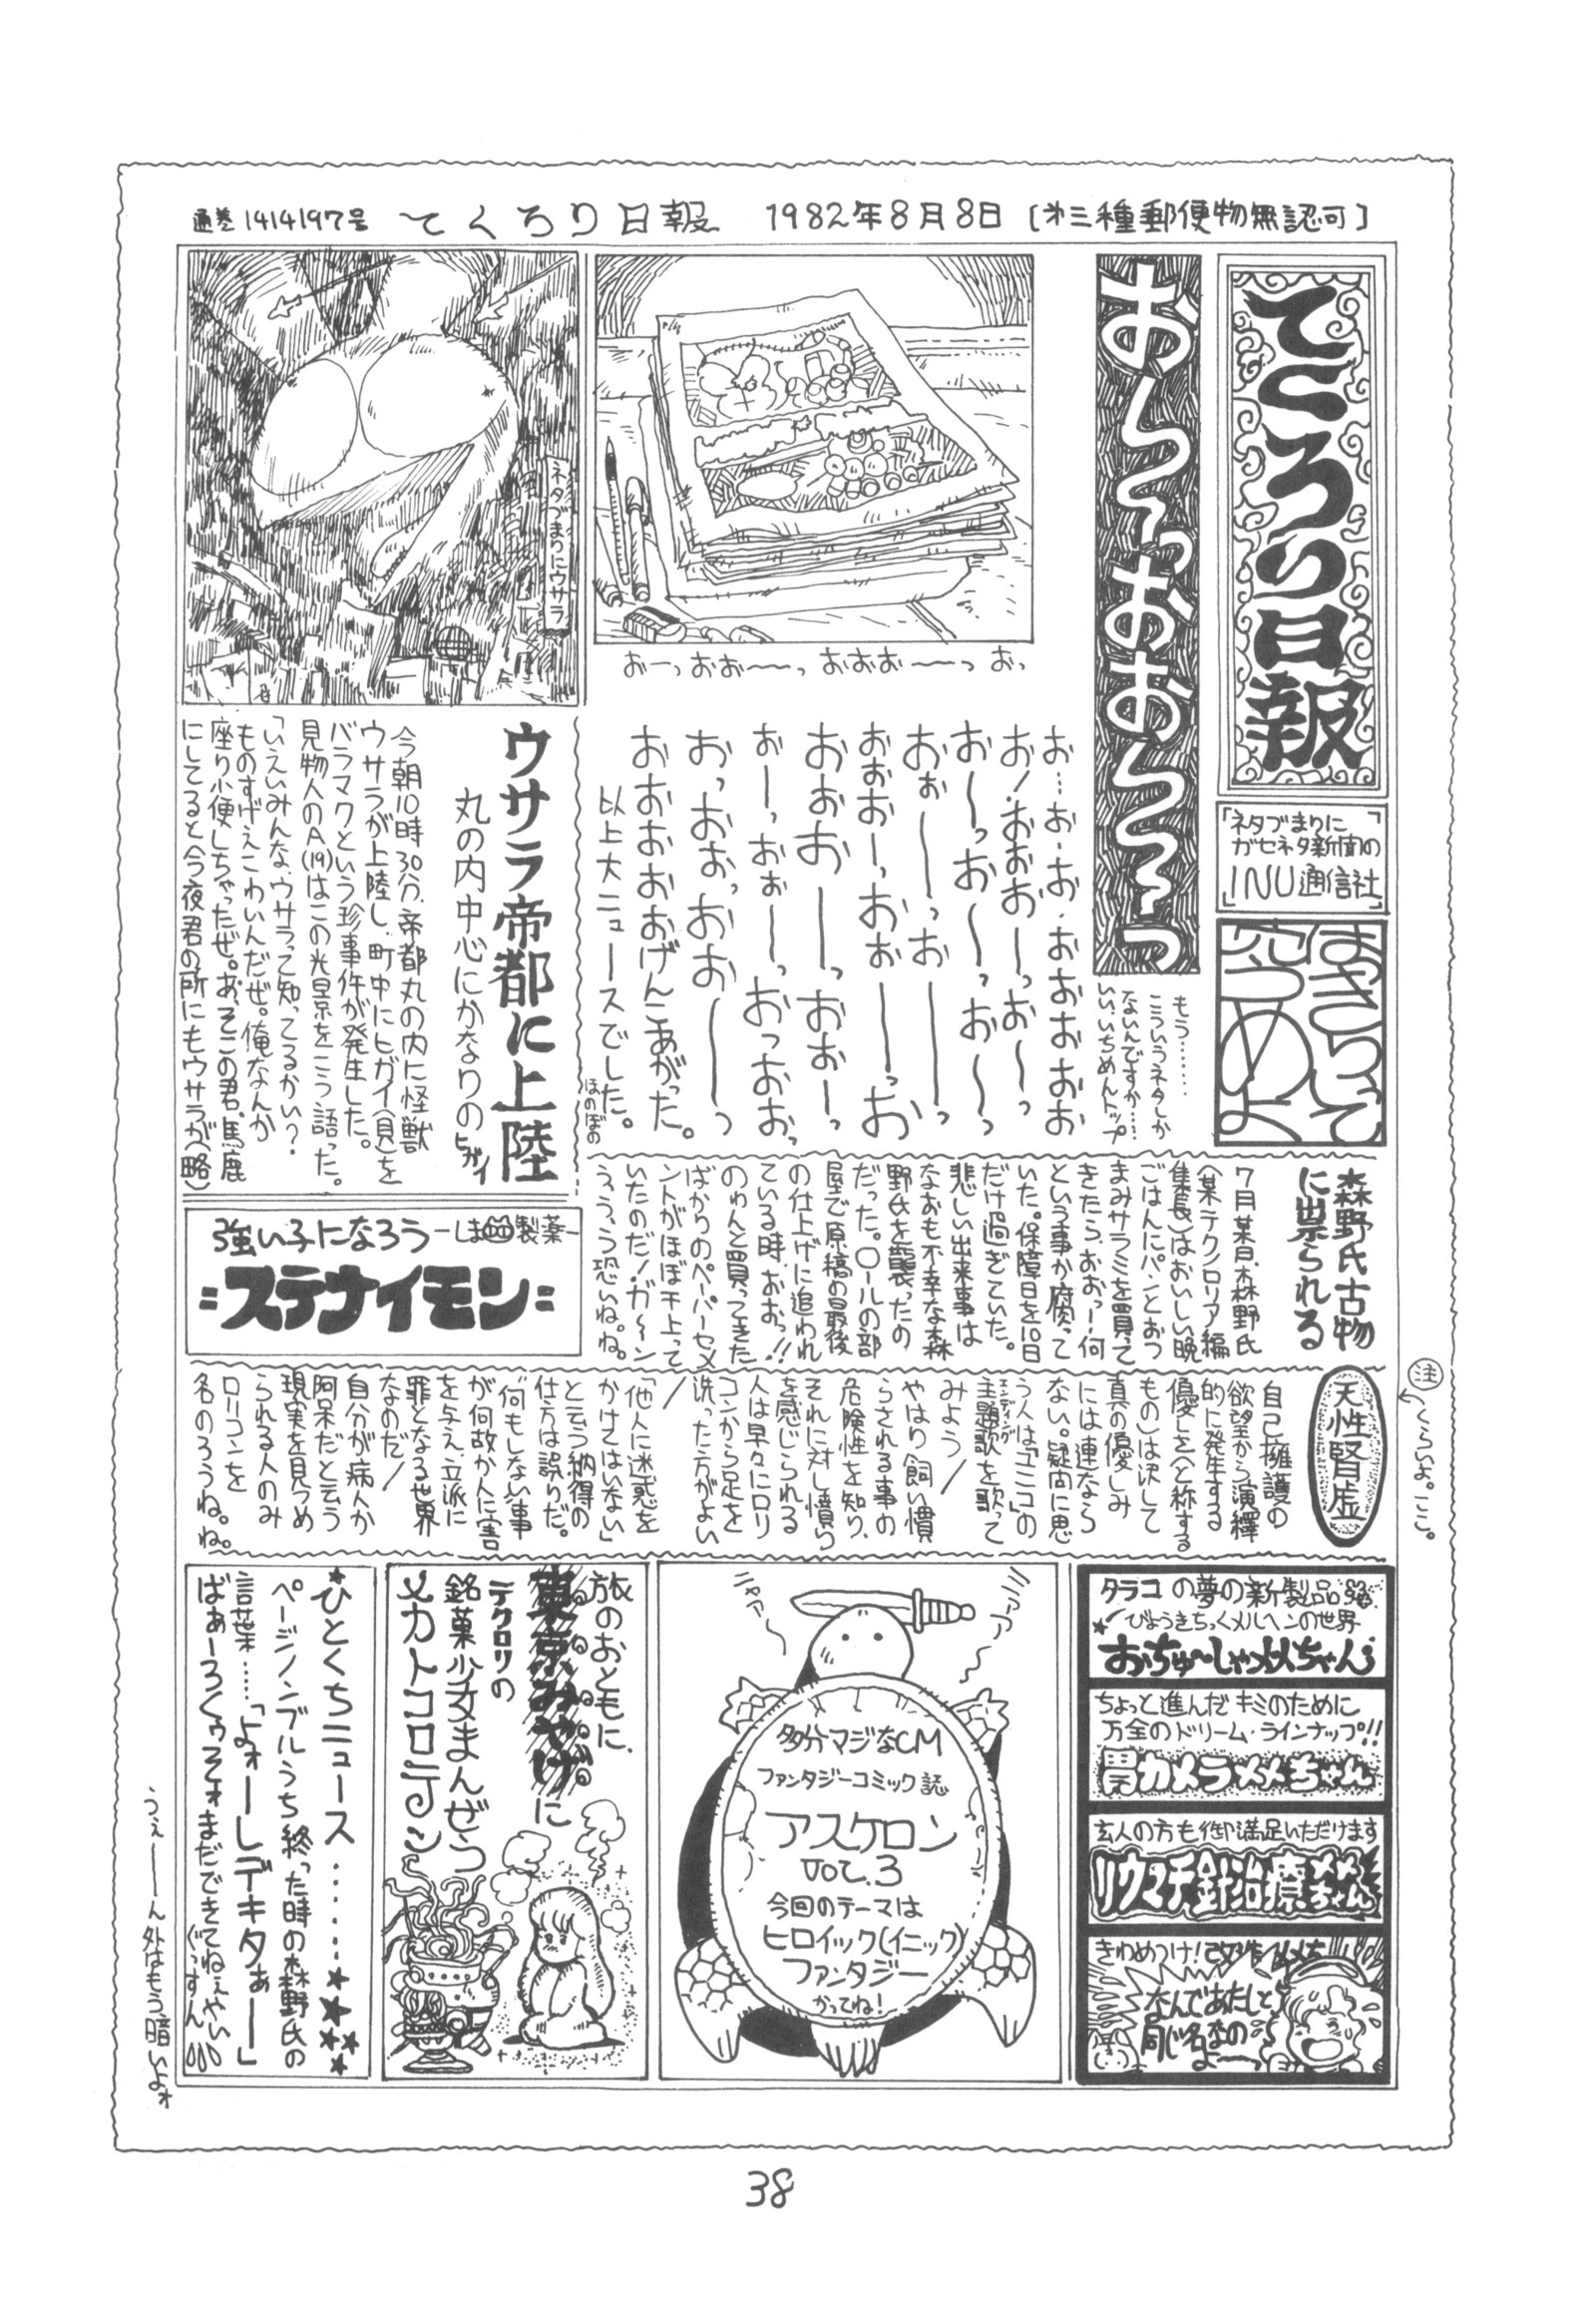 通巻1414197号 てくろり日報 1982年8月8日 [オ三種郵便物無認可]
てくろり日報
「ネタづまりに
ガセネタ新聞の
INU通信社」
はさらって
穴うめよ
お〜っおお〜〜っ
もう……
こういうネタしか
ないんですか……
いい、いちめんトップ
おーっおお〜〜っ おおお〜〜っ おっ
お…お・お・おおおお
お!おおお〜っお〜っ
お〜っお〜っお〜〜っ
おぉ〜〜っお〜〜〜っ
おおお〜っおぉ〜〜っお
おぉお〜〜っおお〜っ
お〜っおぉ〜っおっおおっ
おっおおっおお〜〜〜っ
おおおおおげんこあがった。
以上大ニュースでした。
ほのぼの
ネタづまりにウサラ
ウサラ帝都に上陸
丸の内中心にかなりのヒガイ
今朝10時30分、帝都丸の内に怪獣
ウサラが上陸し、町中にヒガイ(貝)を
バラマクという珍事件が発生した。
見物人のA(19)はこの光景をこう語った。
「いえいみんな、ウサラって知ってるかい?
ものすげえこわいんだぜ。俺なんか
座り小便しちゃったぜ。あ、そこの君、馬鹿
にしてると今夜君の所にもウサラが(略)
強い子になろう-しほ製薬-
=ステナイモン=
森野氏古物
に祟られる
7月某日、森野氏
(某テクノロリア編
集長)はおいしい晩
ごはんにパンとおつ
まみサラミを買って
きたら、おおっー何
という事か腐って
いた。保障日を10日
だけ過ぎていた。
悲しい出来事は
なおも不幸な森
野氏を襲ったの
だった。ロールの部
屋で原稿の最後
の仕上げに追われ
ている時、おおっ!!
のゎんと買ってきた
ばかりのペーパーセメ
ントがほぼ干上って
いたのだ!ガ〜ン
ううっう恐いね。ね。
注
くらいよ。ここ。
天性賢虚
自己擁護の
欲望から演繹
的に発生する
優しさ〈と称する
もの〉は決して
真の優しみ
には連なら
ない。疑問に思
う人は「ユニコ」の
主題歌を歌って
エンディング
みよう/
やはり飼い慣
らされる事の
危険性を知り、
それに対し憤り
を感じられる
人は早々にロリ
コンから足を
洗った方がよい
/
「他人に迷惑を
かけてはいない」
と云う納得の
仕方は誤りだ。
何もしない事
が何故か人に害
を与え、立派に
罪となる世界
なのだ/
自分が病人か
阿呆だと云う
現実を見つめ
られる人のみ
ロリコンを
名のろうね。ね。
タラコの夢の新製品3名
びょうきちっくメルヘンの世界
おちゅ〜しゃメメちゃん
ちょっと進んだキミのために
万全のドリーム・ラインナップ!!
胃カメラメメちゃん
玄人の方も御満足いただけます
リウマチ針治療メメちゃん
きわめつけ!改造メメち
なんであたしと
同じ名なの
よ〜〜っ
多分マジなCM
ファンタジーコミック誌
アスケロン
VOL.3
今回のテーマは
ヒロイック(イニック)
ファンタジー
かってね!
旅のおともに、
東京みやげに
テクロリの
銘菓少女まんぜう
メカトコロテン
ひとくちニュース……
ページノンブルうち終った時の森野氏の
言葉……「よォーしデキタぁー」
ばぁーろくゥそォまだできてねぇやい
(ぐっすん)
うぇーーん外はもう暗いよォ
38